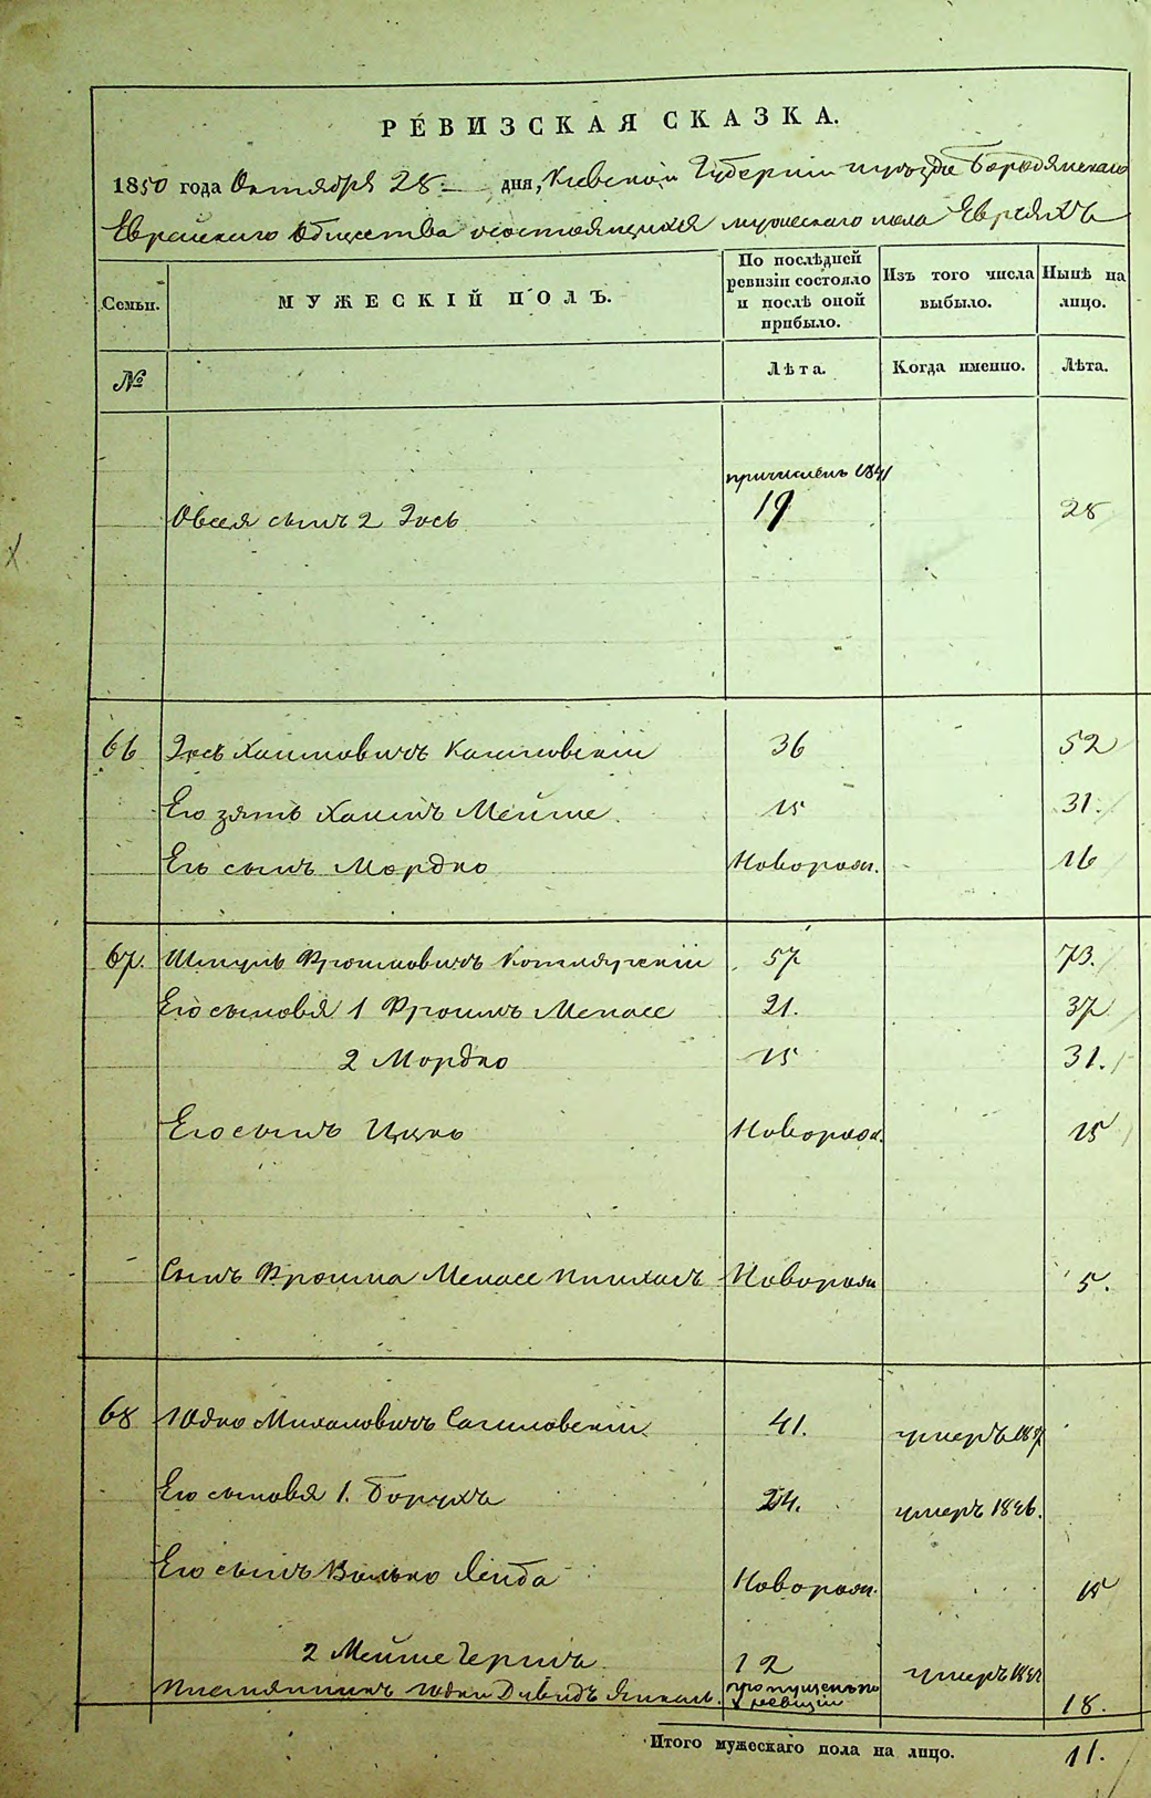 РЕВИЗСКАЯ СКАЗКА.
1850 года Октября 28 дня, Киевской Губернии Бородянскаго
Еврейскаго Общества состоящихъ мужескаго пола Евреяхъ
Семьи.
МУЖЕСКІЙ ПОЛЪ.
По послѣдней
ревизіи состояло
и послѣ оной
прибыло.
Изъ того числа
выбыло.
Нынѣ на
лицо.
№
Лѣта.
Когда именно.
Лѣта.
причисленъ 1841
Овсея сынъ 2 Іось 19 28
66 Хаимовичъ 36 52
Его зять Хаимъ Мейше 15 31.
Его сынъ Мордко Новорож. 16
67. Шмуль Фроимовичъ 57 73.
Его сыновья 1 Фроимъ Менасе 21. 37
2 Мордко 15 31.
Его сынъ Ицко Новорож. 15
Сынъ Фроима Менасе Пинхасъ Новорож 5.
68 Юдко 41. умеръ
Его сыновья 1. Борухъ 24. умеръ 1846.
Его сынъ Волько Лейба Новорож. 15
2 Мейше Гершъ 12 умеръ
Племянникъ Юдки Давидъ пропущенъ по
ревизіи 18.
Итого мужескаго пола на лицо. 11.